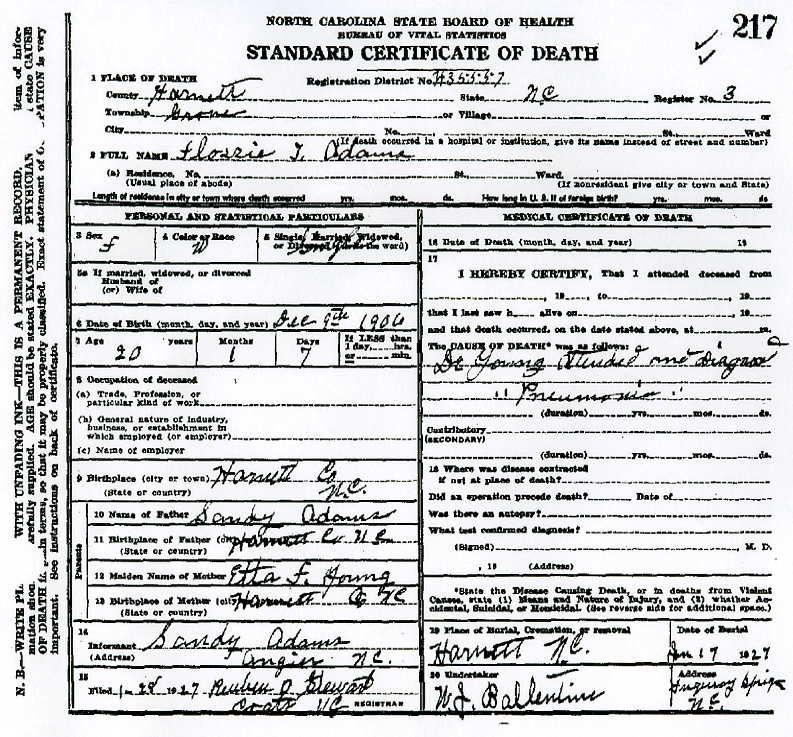 NORTH CAROLINA STATE BOARD OF HEALTH
BUREAU OF VITAL STATISTICS
STANDARD CERTIFICATE OF DEATH
217
1 PLACE OF DEATH
Registration District No.
County Harnett State NC Register No. 3
Township Grove or Village or
City No. St. Ward
(If death occurred in a hospital or institution, give its name instead of street and number)
2 FULL NAME Flossie T. Adams
(a) Residence, No. St. Ward.
(Usual place of abode) (If nonresident give city or town and State)
Length of residence in city or town where death occurred yrs. mos. ds. How long in U. S. if of foreign birth? yrs. mos. ds
PERSONAL AND STATISTICAL PARTICULARS
3 Sex 4 Color or Race 5 Single, Married, Widowed,
or Divorced (write the word)
f W Single
5a If married, widowed, or divorced
Husband of
(or) Wife of
6 Date of Birth (month, day, and year) Dec 9th 1906
7 Age years Months Days If LESS than
20 1 7 1 day, hrs.
or min.
8 Occupation of deceased
(a) Trade, Profession, or
particular kind of work
(b) General nature of industry,
business, or establishment in
which employed (or employer)
(c) Name of employer
9 Birthplace (city or town) Harnett Co
(State or country) N.C.
Parents
10 Name of Father Sandy Adams
11 Birthplace of Father (city Harnett Co N C
(State or country)
12 Maiden Name of Mother Etta F. Young
13 Birthplace of Mother (city Harnett Co NC
(State or country)
14
Informant Sandy Adams
(Address) Angier N.C.
15
Filed 1-28 1927 Reuben J Stewart
Coats NC REGISTRAR
MEDICAL CERTIFICATE OF DEATH
16 Date of Death (month, day, and year) 19
17
I HEREBY CERTIFY, That I attended deceased from
, 19 to , 19
that I last saw h alive on , 19
and that death occurred, on the date stated above, at m.
The CAUSE OF DEATH* was as follows:
Dr Young attended and Diagnosed
" Pneumonia "
(duration) yrs. mos. ds.
Contributory
(SECONDARY)
(duration) yrs. mos. ds.
18 Where was disease contracted
if not at place of death?
Did an operation precede death? Date of
Was there an autopsy?
What test confirmed diagnosis?
(Signed) , M. D.
, 19 (Address)
*State the Disease Causing Death, or in deaths from Violent
Causes, state (1) Means and Nature of Injury, and (2) whether Ac-
cidental, Suicidal, or Homicidal. (See reverse side for additional space.)
19 Place of Burial, Cremation, or removal Date of Burial
Harnett N.C. Jan 17 1927
20 Undertaker Address
N. J. Ballentine Fuquay Springs
N.C.
N. B.—WRITE PL WITH UNFADING INK—THIS IS A PERMANENT RECORD. item of infor-
mation shou arefully supplied. AGE should be stated EXACTLY. PHYSICIAN state CAUSE
OF DEATH in terms, so that it may be properly classified. Exact statement of O PATION is very
important. See instructions on back of certificate.